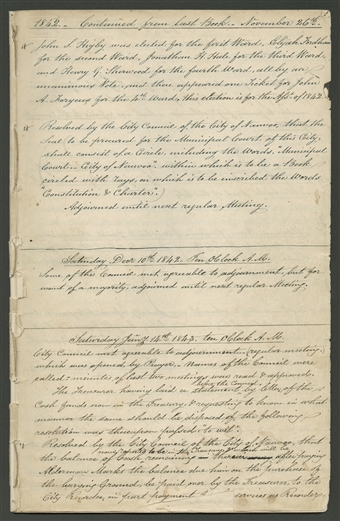 1842. Continued from last Book. November 26th.
John S. Higby was elected for the first Ward, Elijah Fordham
for the second Ward, Jonathan H. Hale for the third Ward,
and Henry G. Sherwood for the fourth Ward, all by an
unanimous Vote. and there appeared one Ticket for John
A. Forgeus for the 4th Ward, this election is for the of 1842
Resolved by the City Council of the City of Nauvoo, that the
Seal to be procured for the Municipal Court of this City,
shall consist of a Circle, including the Words, "Municipal
Court. City of Nauvoo" within which is to be a Book,
circled with rays, on which is to be inscribed the Words
"Constitution & Charter."
Adjourned until next regular Meeting.
Saturday Decr 10th 1842. Ten O'Clock A.M.
Some of the Council met agreeable to adjournment, but for
want of a majority, adjourned until next regular Meeting.
Saturday Jany 14th 1843. ten O'Clock A.M.
City Council met agreeable to adjournment. (regular meeting)
which was opened by Prayer. Names of the Council were
called: minutes of last two meetings were read & approved.
before the Council
The Treasurer having laid a statement by letter of the
Cash funds now in the Treasury, & requesting to know in what
manner the same should be disposed of the following
resolution was thereupon passed: to wit:
Resolved by the City Council of the City of Nauvoo, that
the balance of Cash remaining after paying
Alderman Marks the balance due him on the purchase of
the burying Ground, be paid over by the Treasurer to the
City Recorder, in part payment services as Recorder